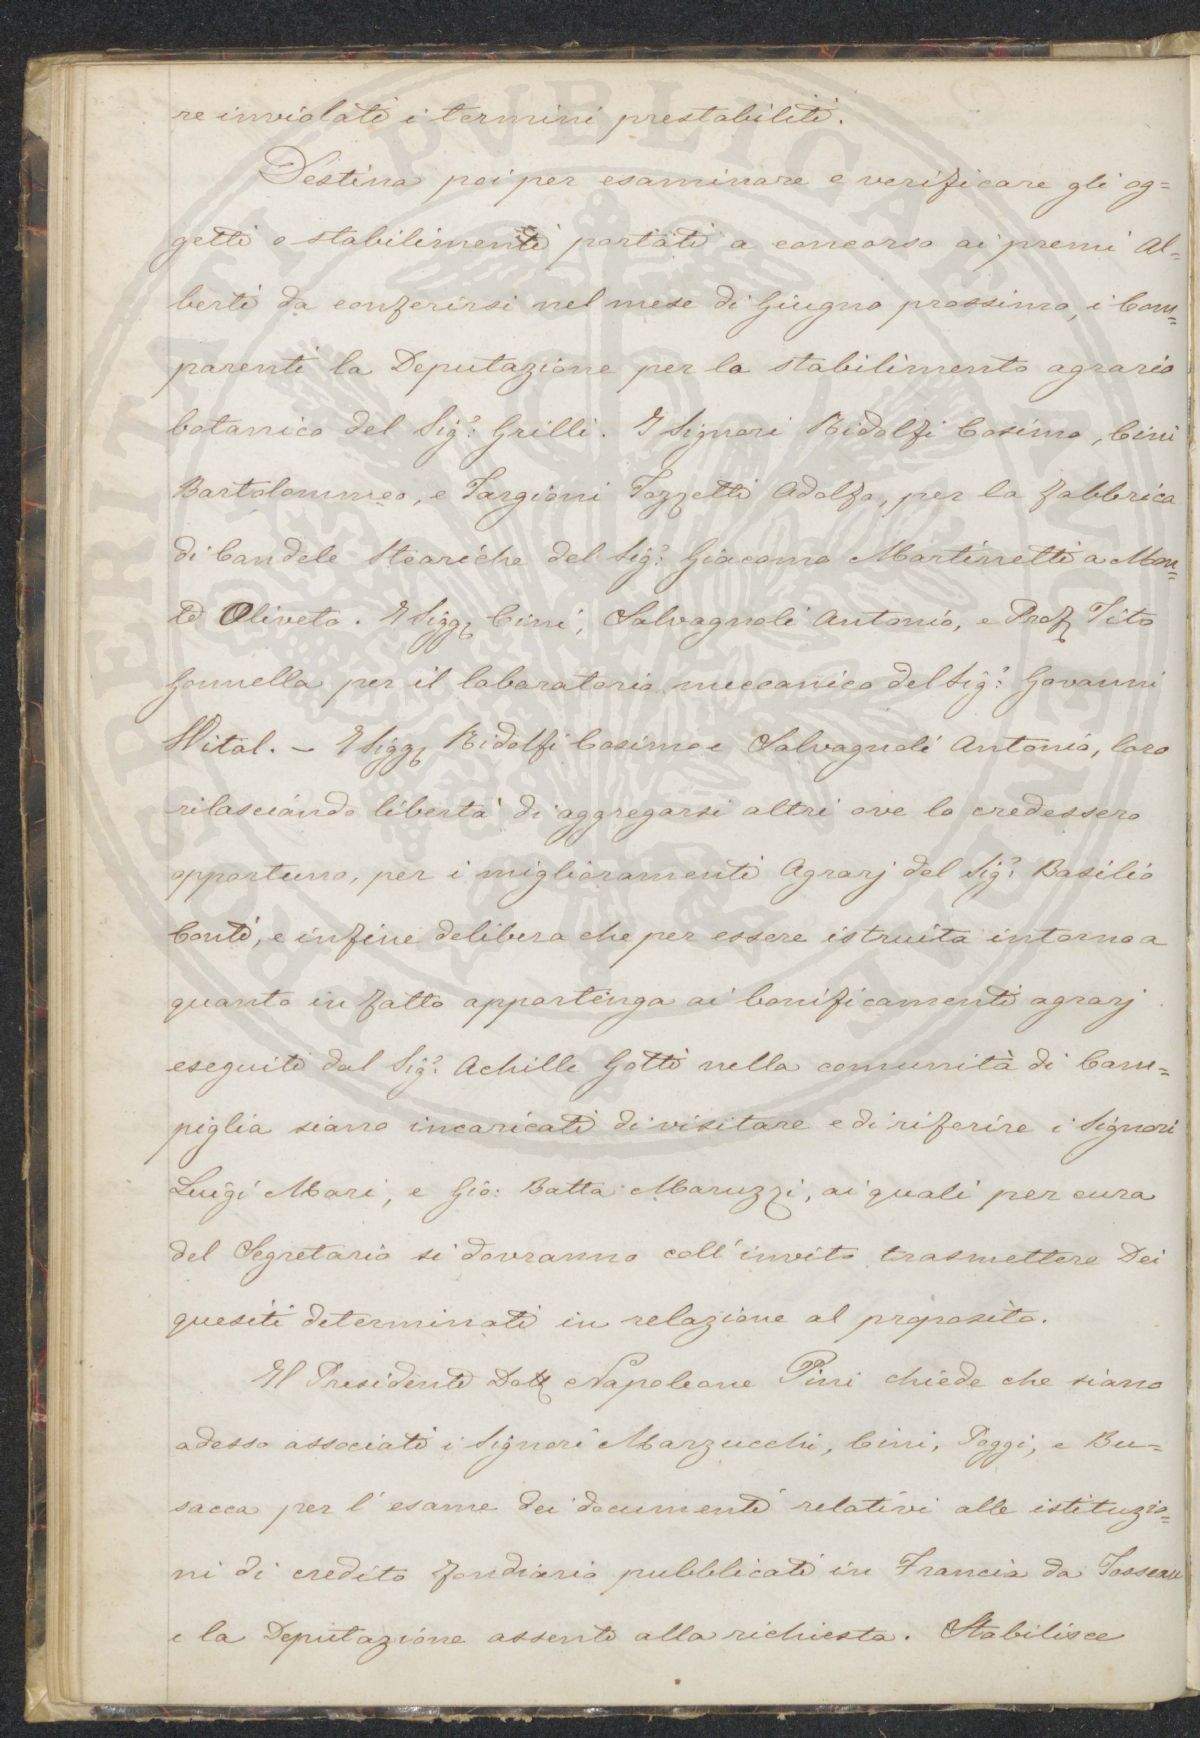 re inviolati i termini prestabiliti.
Destina poi per esaminare e verificare gli og=
getti o stabilimenti portati a concorso ai premi Al=
berti da conferirsi nel mese di Giugno prossimo, i Com=
parenti la Deputazione per lo stabilimento agrario
botanico del Sigr. Grilli. I Signori Ridolfi Cosimo, Cini
Bartolommeo, e Targioni Tozzetti Adolfo, per la fabbrica
di Candele Steariche del Sigr. Giacomo Martinetti a Mon=
te Oliveto. I Sigg. Cini, Salvagnoli Antonio, e Prof. Tito
Gonnella per il laboratorio meccanico del Sigr. Govanni
Wital. - I Sigg. Ridolfi Cosimo e Salvagnoli Antonio, loro
rilasciando libertà di aggregarsi altri ove lo credessero
opportuno, per i miglioramenti Agrarj del Sigr. Basilio
Conti, e infine delibera che per essere istruita intorno a
quanto in fatto appartenga ai bonificamenti agrarj
eseguiti dal Sigr. Achille Gotti nella comunità di Cam=
piglia siano incaricati di visitare e di riferire i Signori
Luigi Mari, e Gio: Batta Maruzzi, ai quali per cura
del Segretario si dovranno coll'invito trasmettere Dei
quesiti determinati in relazione al proposito.
Il Presidente Dott. Napoleone Pini chiede che siano
adesso associati i Signori Marzucchi, Cini, Poggi, e Bu=
sacca per l'esame dei documenti relativi alle istituzio=
ni di credito fondiario pubblicati in Francia da Josseau
e la Deputazione assente alla richiesta. Stabilisce
PROSPERITATI PUBLICAE AUGENDAE